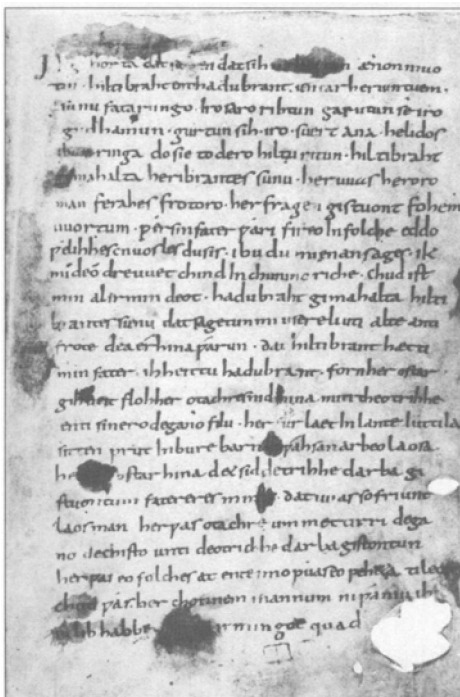 horta dat dat sih ænon muo
hiltibraht enti hadubrant. untar heriuntuem.
sunu fatarungo. iro saro rihtun garutun se iro
gudhamun. gurtun sih. iro. suert ana. helidos
ringa do sie to dero hiltu ritun. hiltibraht
mahalta heribrantes sunu. her uuas heroro
man ferahes frotoro. her fragen gistuont fohem
uuortum. ƿer sin fater ƿari fireo In folche eddo
ƿelihhes cnuosles du sis. ibu du mi enan sages. ik
mi deodre uuet chind In chunincriche. chud ist
min al irmin deot. hadubraht gimahalta hilti
brantes sunu dat sagetun mi usere liuti alte anti
frote dea erhina ƿarun. dat hiltibrant hætti
min fater. ih heittu hadubrant. forn her ostar
gihueit floh her otachres nid hina miti theotrihhe.
enti sinero degano filu. her furlaet In lante luttila
sitten prut In bure barn ƿahsan arbeo laosa.
ostar hina det sid detrihhe darba gi
stuontum fatereres mines. dat uuas so friunt
laos man her ƿas otachre ummett irri dega
no dechisto unti deotrichhe darba gistontun
her ƿas eo folches at ente imo ƿuas eo feheta ti leop
chud ƿas her chonnem mannum ni ƿaniu ih
lib habbe irmingot quad